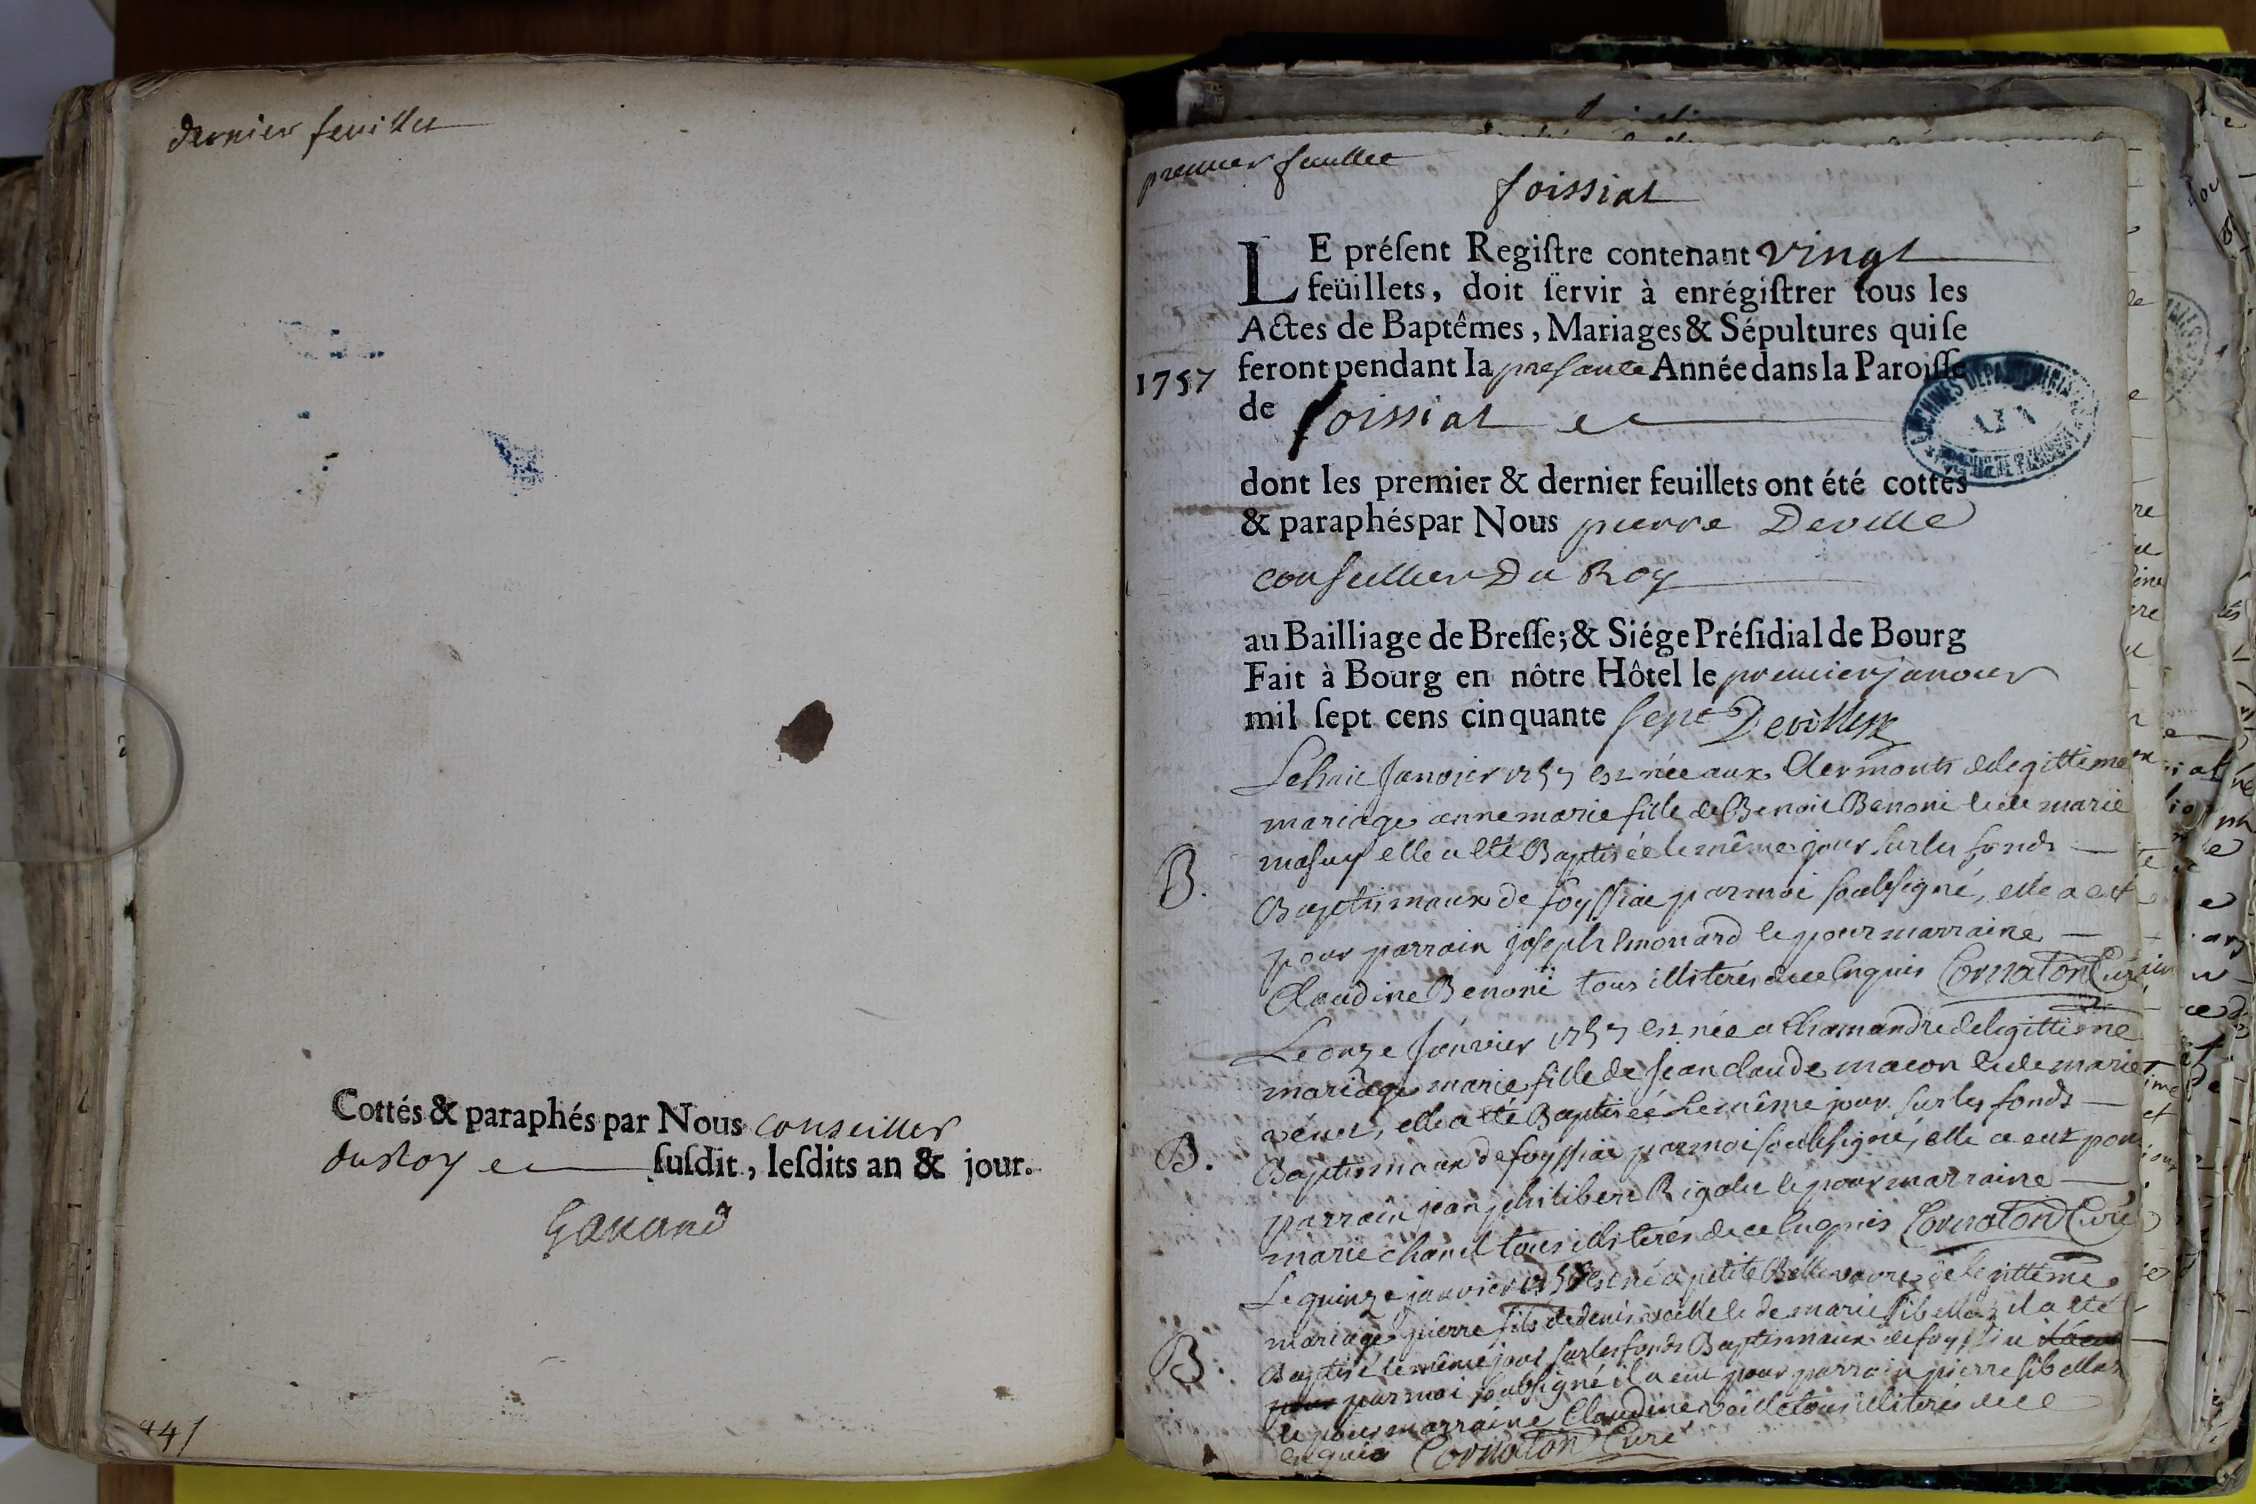 dernier feuillet
Cottés & paraphés par Nous conseiller
du Roy susdit, lesdits an & jour.
441
premier feuillet
foissiat
LE préſent Regiſtre contenant vingt
feüillets, doit ſervir à enrégiſtrer tous les
Actes de Baptêmes, Mariages & Sépultures qui ſe
feront pendant la presante Année dans la Paroiſſe
1757
de foissiat
dont les premier & dernier feuillets ont été cottés
& paraphés par Nous pierre Deville
conseiller Du Roy
au Bailliage de Breſſe; & Siége Préſidial de Bourg
Fait à Bourg en nôtre Hôtel le premier janvier
mil ſept cens cinquante sept Deville
Le huit Janvier 1757 est née aux Clermonts de legittime
mariage anne marie fille de Benoit Benoni et de marie
masuy elle a été Baptisée le même jour sur les fonds
B.
Baptismaux de foyssiat par moi soubsigné, elle a eut
pour parrain joseph Emonard et pour marraine
Claudine Benoni tous illiterés de ce enquis Cornaton Curé
Le onze Janvier 1757 est née a Chamandre de legittime
mariage marie fille de Jean claude macon et de marie
elle a été Baptisée le même jour sur les fonds
B.
Baptismaux de foyssiat par moi soubsigné, elle a eut pour
parrain jean philibert Rigolet et pour marraine
marie chanel tous illiterés de ce enquis Cornaton Curé
Le quinze janvier est né a petite Bellevavre de legittime
mariage pierre fils de denis et de marie sibellas il a été
B.
Baptisé le même jour sur les fonds Baptismaux de foyssiat
par moi soubsigné il a eut pour parrain pierre sibellas
et pour marraine Claudine tous illiterés de ce
enquis Cornaton Curé